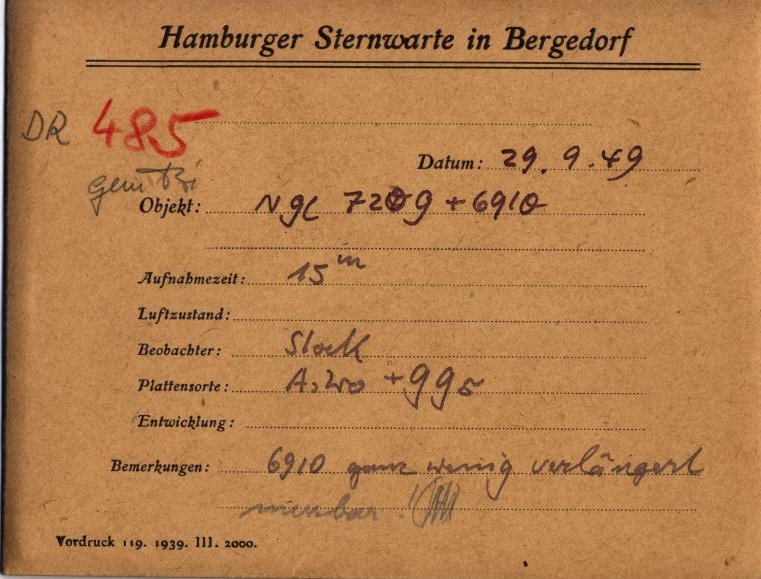 Hamburger Sternwarte in Bergedorf
DR 485
Datum: 29. 9. 49
gem
Objekt: NGC 7209 + 6910
Aufnahmezeit: 15 m
Luftzustand:
Beobachter: Stock
Plattensorte: + 99
Entwicklung:
Bemerkungen: 6910 ganz wenig verlängert
messbar!
Vordruck 119. 1939. III. 2000.